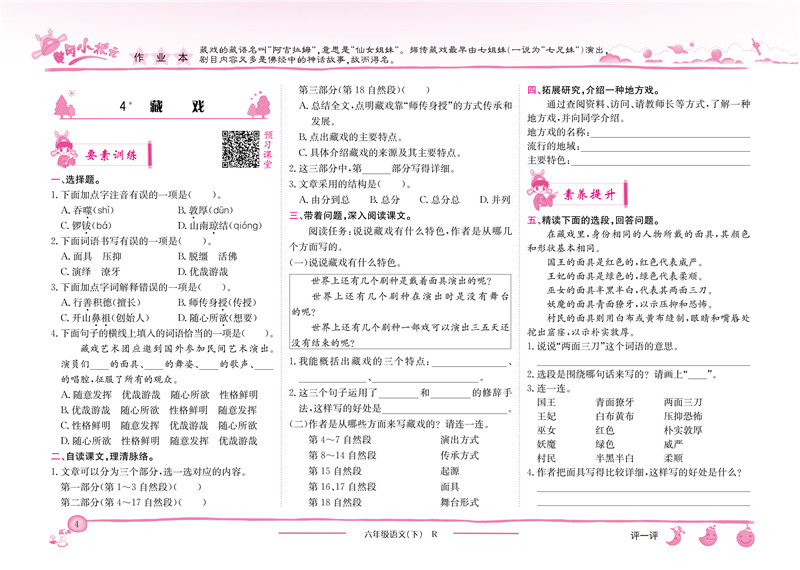 黄冈小状元
作业本
藏戏的藏语名叫“阿吉拉姆”,意思是“仙女姐妹”。据传藏戏最早由七姐妹(一说为“七兄妹”)演出,
剧目内容又多是佛经中的神话故事,故而得名。
4* 藏 戏
要素训练
预习课堂
一、选择题。
1. 下面加点字注音有误的一项是( )。
A. 吞噬(shì) B. 敦厚(dūn)
C. 锣钹(bá) D. 山南琼结(qióng)
2. 下面词语书写有误的一项是( )。
A. 面具 压抑 B. 脱缰 活佛
C. 演绎 潦牙 D. 优哉游哉
3. 下面加点字词解释错误的一项是( )。
A. 行善积德(擅长) B. 师传身授(传授)
C. 开山鼻祖(创始人) D. 随心所欲(想要)
4. 下面句子的横线上填入的词语恰当的一项是( )。
藏戏艺术团应邀到国外参加民间艺术演出。
演员们____的面具、____的舞姿、____的歌声、____
的唱腔,征服了所有的观众。
A. 随意发挥 优哉游哉 随心所欲 性格鲜明
B. 优哉游哉 随心所欲 性格鲜明 随意发挥
C. 性格鲜明 随意发挥 优哉游哉 随心所欲
D. 随心所欲 性格鲜明 随意发挥 优哉游哉
二、自读课文,理清脉络。
1. 文章可以分为三个部分,选一选对应的内容。
第一部分(第 1～3 自然段)( )
第二部分(第 4～17 自然段)( )
第三部分(第 18 自然段)( )
A. 总结全文,点明藏戏靠“师传身授”的方式传承和
发展。
B. 点出藏戏的主要特点。
C. 具体介绍藏戏的来源及其主要特点。
2. 这三部分中,第____部分写得详细。
3. 文章采用的结构是( )。
A. 由分到总 B. 总分 C. 总分总 D. 并列
三、带着问题,深入阅读课文。
阅读任务:说说藏戏有什么特色,作者是从哪几
个方面写的。
(一)说说藏戏有什么特色。
世界上还有几个剧种是戴着面具演出的呢?
世界上还有几个剧种在演出时是没有舞台
的呢?
世界上还有几个剧种一部戏可以演出三五天还
没有结束的呢?
1. 我能概括出藏戏的三个特点:____________、
____________、____________。
2. 这三个句子运用了________和________的修辞手
法,这样写的好处是____________________。
(二)作者是从哪些方面来写藏戏的?请连一连。
第 4～7 自然段 演出方式
第 8～14 自然段 传承方式
第 15 自然段 起源
第 16、17 自然段 面具
第 18 自然段 舞台形式
四、拓展研究,介绍一种地方戏。
通过查阅资料、访问、请教师长等方式,了解一种
地方戏,并向同学介绍。
地方戏的名称:____________________
流行的地域:____________________
主要特色:____________________
素养提升
五、精读下面的选段,回答问题。
在藏戏里,身份相同的人物所戴的面具,其颜色
和形状基本相同。
国王的面具是红色的,红色代表威严。
王妃的面具是绿色的,绿色代表柔顺。
巫女的面具半黑半白,代表其两面三刀。
妖魔的面具青面獠牙,以示压抑和恐怖。
村民的面具则用白布或黄布缝制,眼睛和嘴唇处
挖出窟窿,以示朴实敦厚。
1. 说说“两面三刀”这个词语的意思。
____________________
2. 选段是围绕哪句话来写的?请画上“____”。
3. 连一连。
国王 青面獠牙 两面三刀
王妃 白布黄布 压抑恐怖
巫女 红色 朴实敦厚
妖魔 绿色 威严
村民 半黑半白 柔顺
4. 作者把面具写得比较详细,这样写的好处是什么?
____________________
____________________
4
六年级语文(下) R
评一评